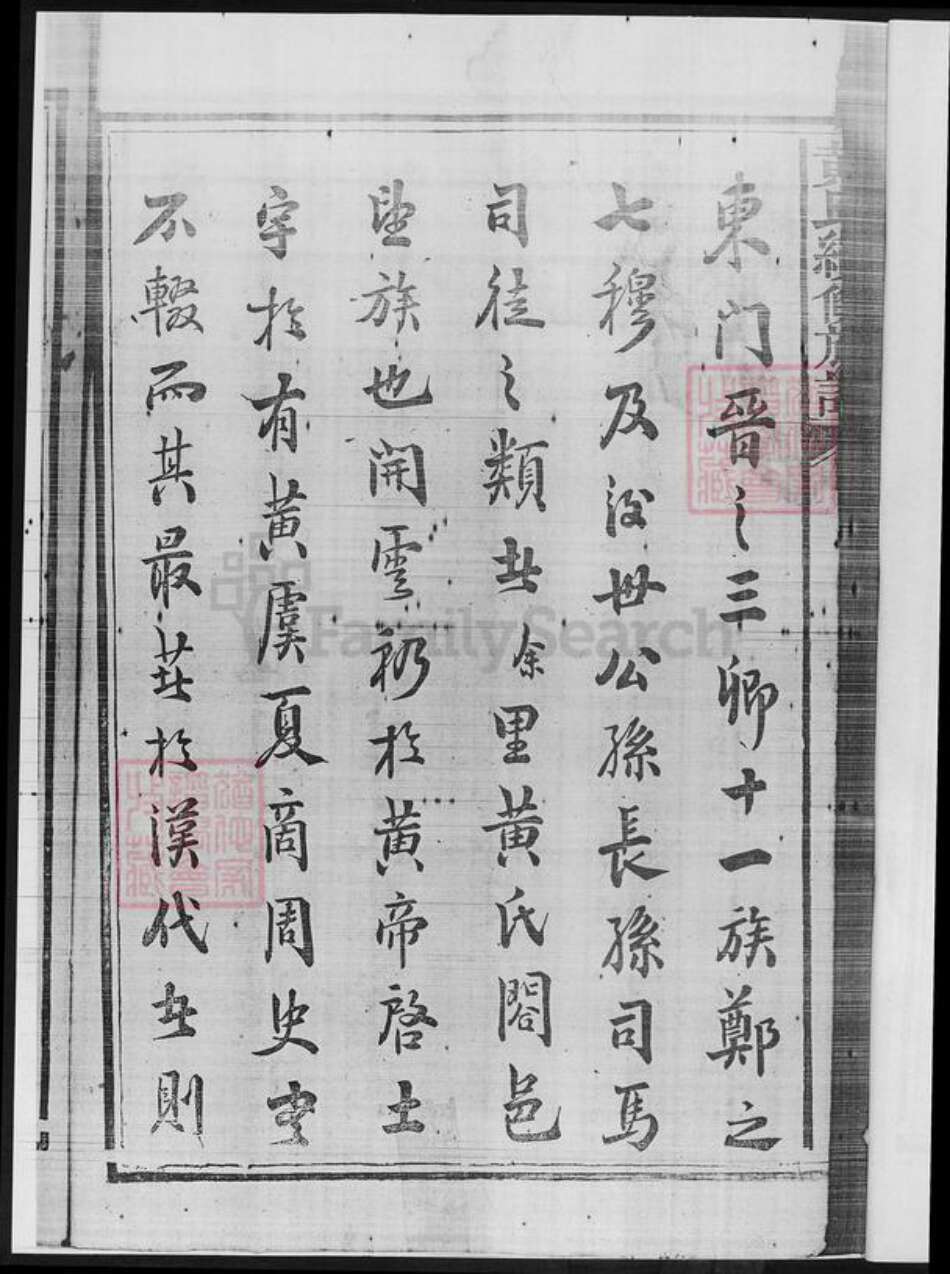 黃氏續修族譜
東門晉之三卿十一族鄭之
七穆及後世公孫長孫司馬
司徒之類是余里黃氏閤邑
望族也開雲礽於黃帝啓土
宇於有黃虞夏商周史書
不輟而其最著於漢代者則
FamilySearch